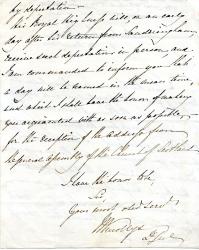 by deputation —
His Royal Highness will, on an early
day after his return from Sandringham,
receive such deputation in person, and
I am commanded to inform you that
a day will be named in the mean time,
and which I shall have the honor of making
you acquainted with as soon as possible,
for the reception of the address from
the General Assembly of the Church of Scotland.
I have the honor to be
Sir,
Your most obed. Servt